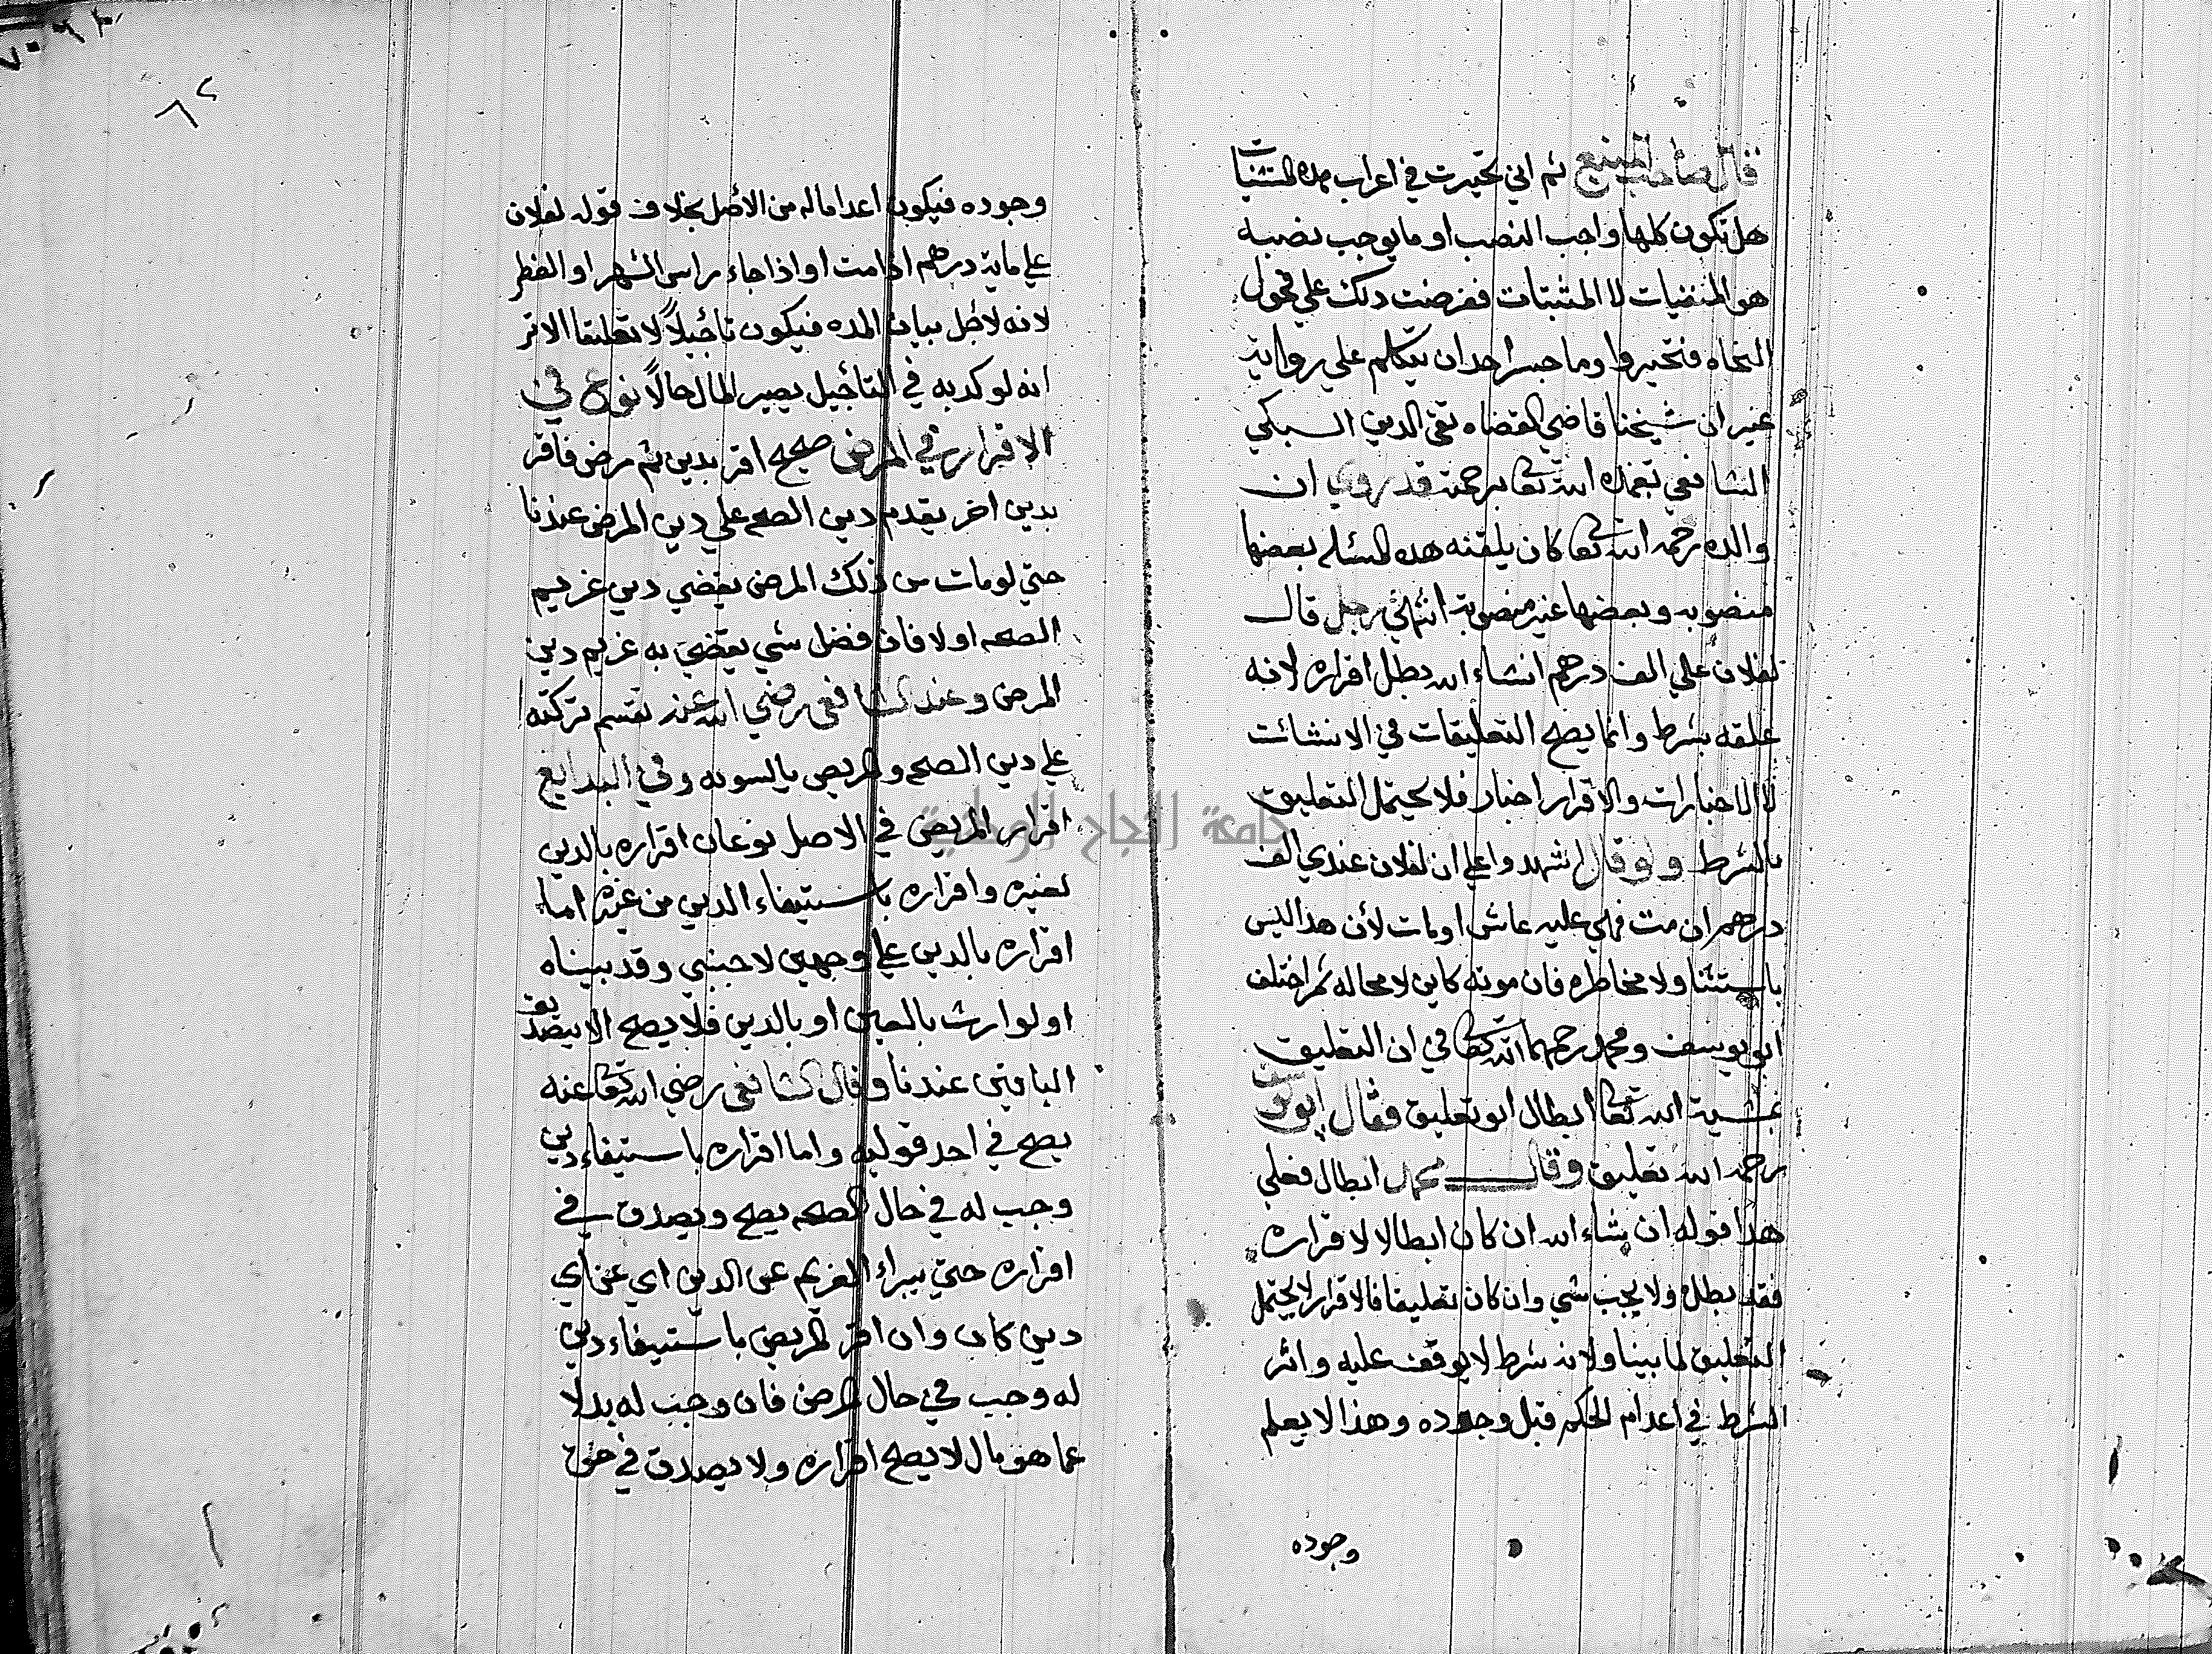 قال صاحب المنبع ثم اني تحيرت في اعراب هذه المستثنيات
هل تكون كلها واجب النصب او ما يوجب نصبه
هو المنفيات لا المثبتات فعرضت ذلك علي فحول
النحاه فتحيروا وما جسر احد ان يتكلم علي روايه
غير ان شيخنا قاضي القضاه تقي الدين السبكي
الشافعي تغمده الله تعالى برحمته قد روي ان
والده رحمه الله تعالى كان يلقنه هذه المسئله بعضها
منصوبه وبعضها غير منصوبة انتهي رجل قال
لفلان علي الف درهم انشاء الله بطل اقراره لانه
علقه بشرط وانما يصح التعليقات في الانشائت
لا الاخبارات والاقرار اخبار فلا يحتمل التعليق
بالشرط ولو قال اشهدوا علي ان لفلان عندي الف
درهم ان مت فهي عليه عاش او مات لأن هذا ليس
باستثنا ولا مخاطره فان موته كاين لا محاله ثم اختلف
ابو يوسف ومحمد رحمهما الله تعالى في ان التعليق
بمشية الله تعالى ابطال او تعليق فقال ابو يوسف
رحمه الله تعليق وقال محمد ابطال فعلي
هذا قوله ان شاء الله ان كان ابطالا لاقراره
فقد بطل ولا يجب شي وان كان تعليقا فالاقرار لا يحتمل
التعليق لما بينا ولانه شرط لا يوقف عليه واثر
الشرط في اعدام الحكم قبل وجوده وهذا لا يعلم
وجوده
٦٢
وجوده فيكون اعداما له من الأصل بخلاف قوله لفلان
علي ماية درهم اذا مت او اذا جاء راس الشهر او الفطر
لانه لاجل بيان المده فيكون تأجيلاً لا تعليقا الا تر
انه لو كذبه في التأجيل يصير المال حالاً نوع في
الاقرار في المرض صحيح اقر بدين ثم مرض فاقر
بدين اخر يقدم دين الصحه علي دين المرض عندنا
حتي لو مات من ذلك المرض يقضي دين غريم
الصحه اولا فان فضل شي يقضي به غريم دين
المرض وعند الشافعي رضي الله عنه تقسم تركته
علي دين الصحه والمريض بالسويه وفي البدايع
اقرار المريض في الاصل نوعان اقراره بالدين
لغيره واقراره باستيفاء الدين من غيره اما
اقراره بالدين علي وجهين لاجنبي وقد بيناه
او لوارث بالعين او بالدين فلا يصح الا بتصديق
الباقين عندنا وقال الشافعي رضي الله تعالى عنه
يصح في احد قوليه واما اقراره باستيفاء دين
وجب له في حال الصحه يصح ويصدق في
اقراره حتي يبراء الغريم عن الدين اي عن أي
دين كان وان اقر المريض باستيفاء دين
له وجب في حال المرض فان وجب له بدلا
عما هو مال لا يصح اقراره ولا يصدق في حق
جامعة النجاح الوطنية